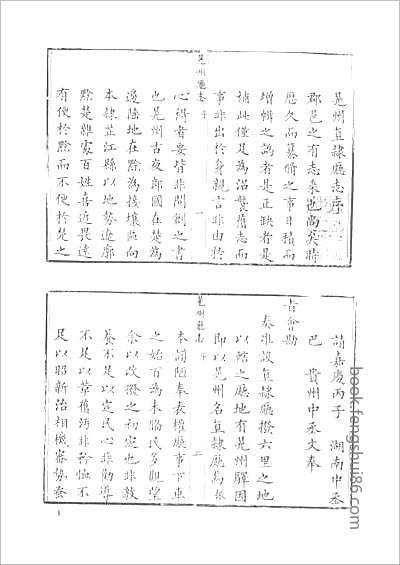 晃州直隸廳志序
郡邑之有志來也尚矣時
歷久而纂脩之事日積而
增輯之譌者是正缺者是
補此僅足為沿襲舊志而
事非出於身親言非由於
心得者要皆非開創之書
也晃州古夜郎國在楚為
邊陲在黔為接壤區向
本隸芷江縣以地勢遼廓
黔楚雜處百姓喜近畏遠
有便於黔而不便於楚之
晃州廳志 序
一
請嘉慶丙子 湖南中丞
巴 貴州中丞文奉
旨會勘
奏准設直隸廳撥六里之地
以轄之廳地有晃州驛因
即以晃州名直隸廳焉
本謭陋奉表權廳事下車
之始百為未備民多觀望
余以改撥之初宓也非教
養不足以定民心非勸導
不足以革舊污非矜恤不
足以昭新治相機審勢蚤
晃州廳志 序
二
1
book.fengshui86.com